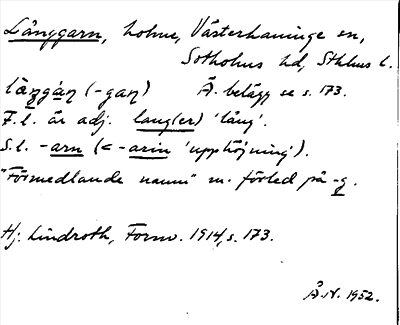 Långgarn, holme, Västerhaninge sn,
Sotholms hd, Sthlms l.
làŋgáṇ (-gaṇ) Ä. belägg se s. 173.
F.l. är adj. lang(er) 'lång'.
S.l. -arn (< -arin 'upphöjning').
"Förmedlande namn" m. förled på -g.
Hj. Lindroth, Fornv. 1914, s. 173.
Å.N. 1952.